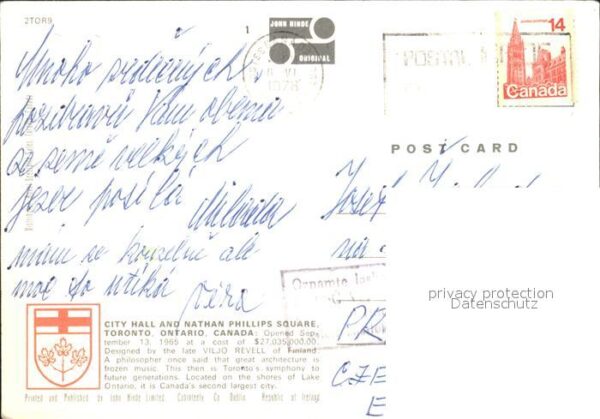 2TOR9
1
JOHN HINDE
ORIGINAL
VI
1978
POSTAL
14
Canada
POST CARD
Mnoho srdečných
pozdravů Vám oběma
ze země velkých
jezer posílá Milada
mám se kouzelně ale
moc to utíká
Věra
Josef
na
PR
CZE
E
CITY HALL AND NATHAN PHILLIPS SQUARE,
TORONTO, ONTARIO, CANADA: Opened Sep-
tember 13, 1965 at a cost of $27,035,000.00.
Designed by the late VILJO REVELL of Finland.
A philosopher once said that great architecture is
frozen music. This then is Toronto's symphony to
future generations. Located on the shores of Lake
Ontario, it is Canada's second largest city.
Printed and Published by John Hinde Limited, Cabinteely Co Dublin, Republic of Ireland
privacy protection
Datenschutz